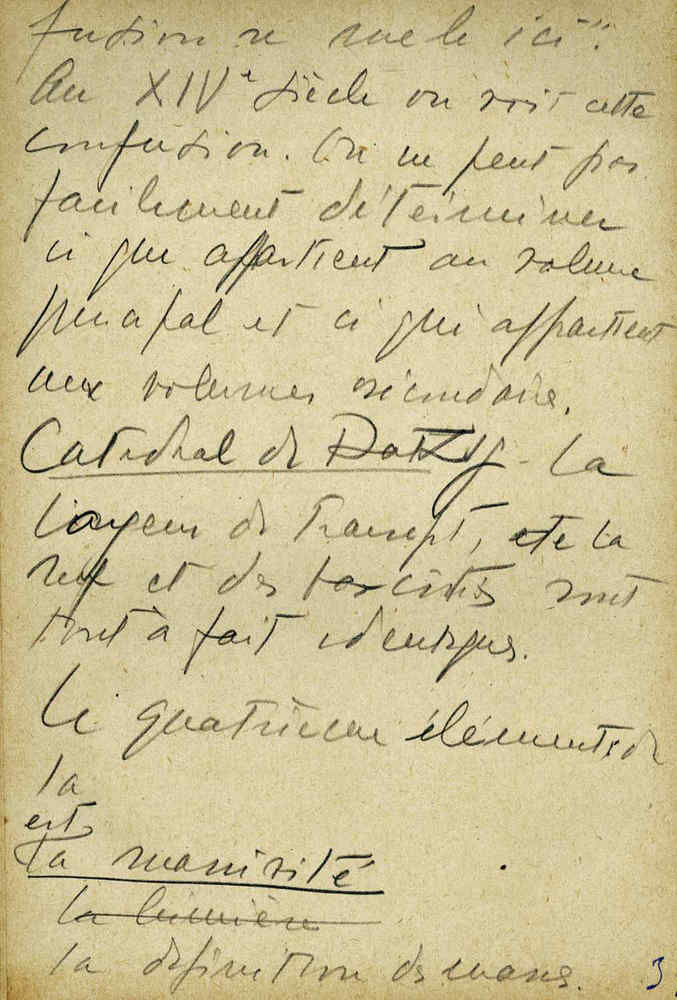 fusion se mele ici".
Au XIVe siècle on voit cette
confusion. On ne peut pas
facilement déterminer
ci que appartient au volume
principal et ci qui appartient
aux volumes secondaire.
Catedral de - La
largeur de transept, de la
nef et des bas cotés sont
tout à fait identiques.
Le quatrieme élément de
la
est
la massivité
la lumière
la definition des masse.
3